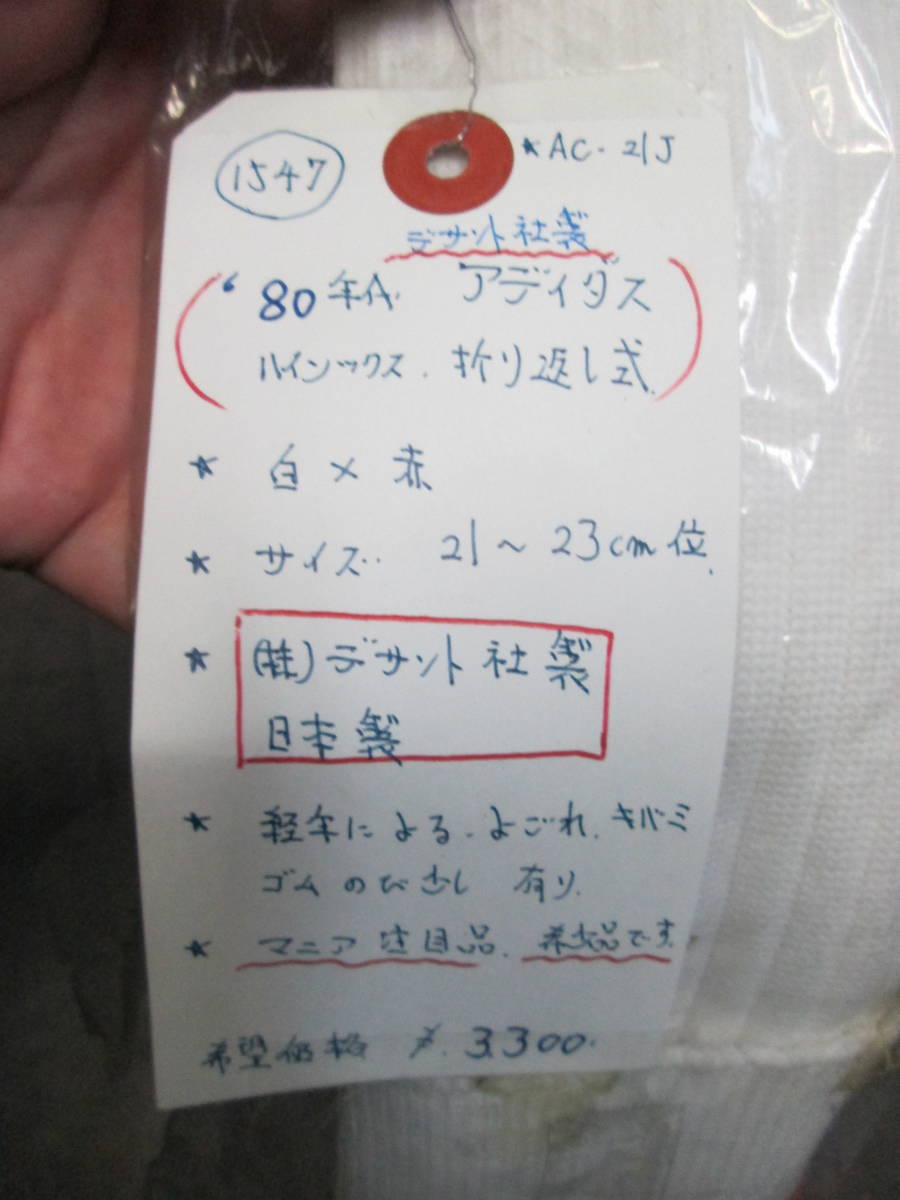 1547
★AC-21J
デサント社製
'80年代 アディダス
ハインックス. 折り返し式
★ 白×赤
★ サイズ.. 21〜23cm位.
★ (株)デサント社製
日本製
★ 軽年による.よごれ.キバミ
ゴムのび少し 有り.
★ マニア注目品. 希少品です.
希望価格 ¥.3.300.